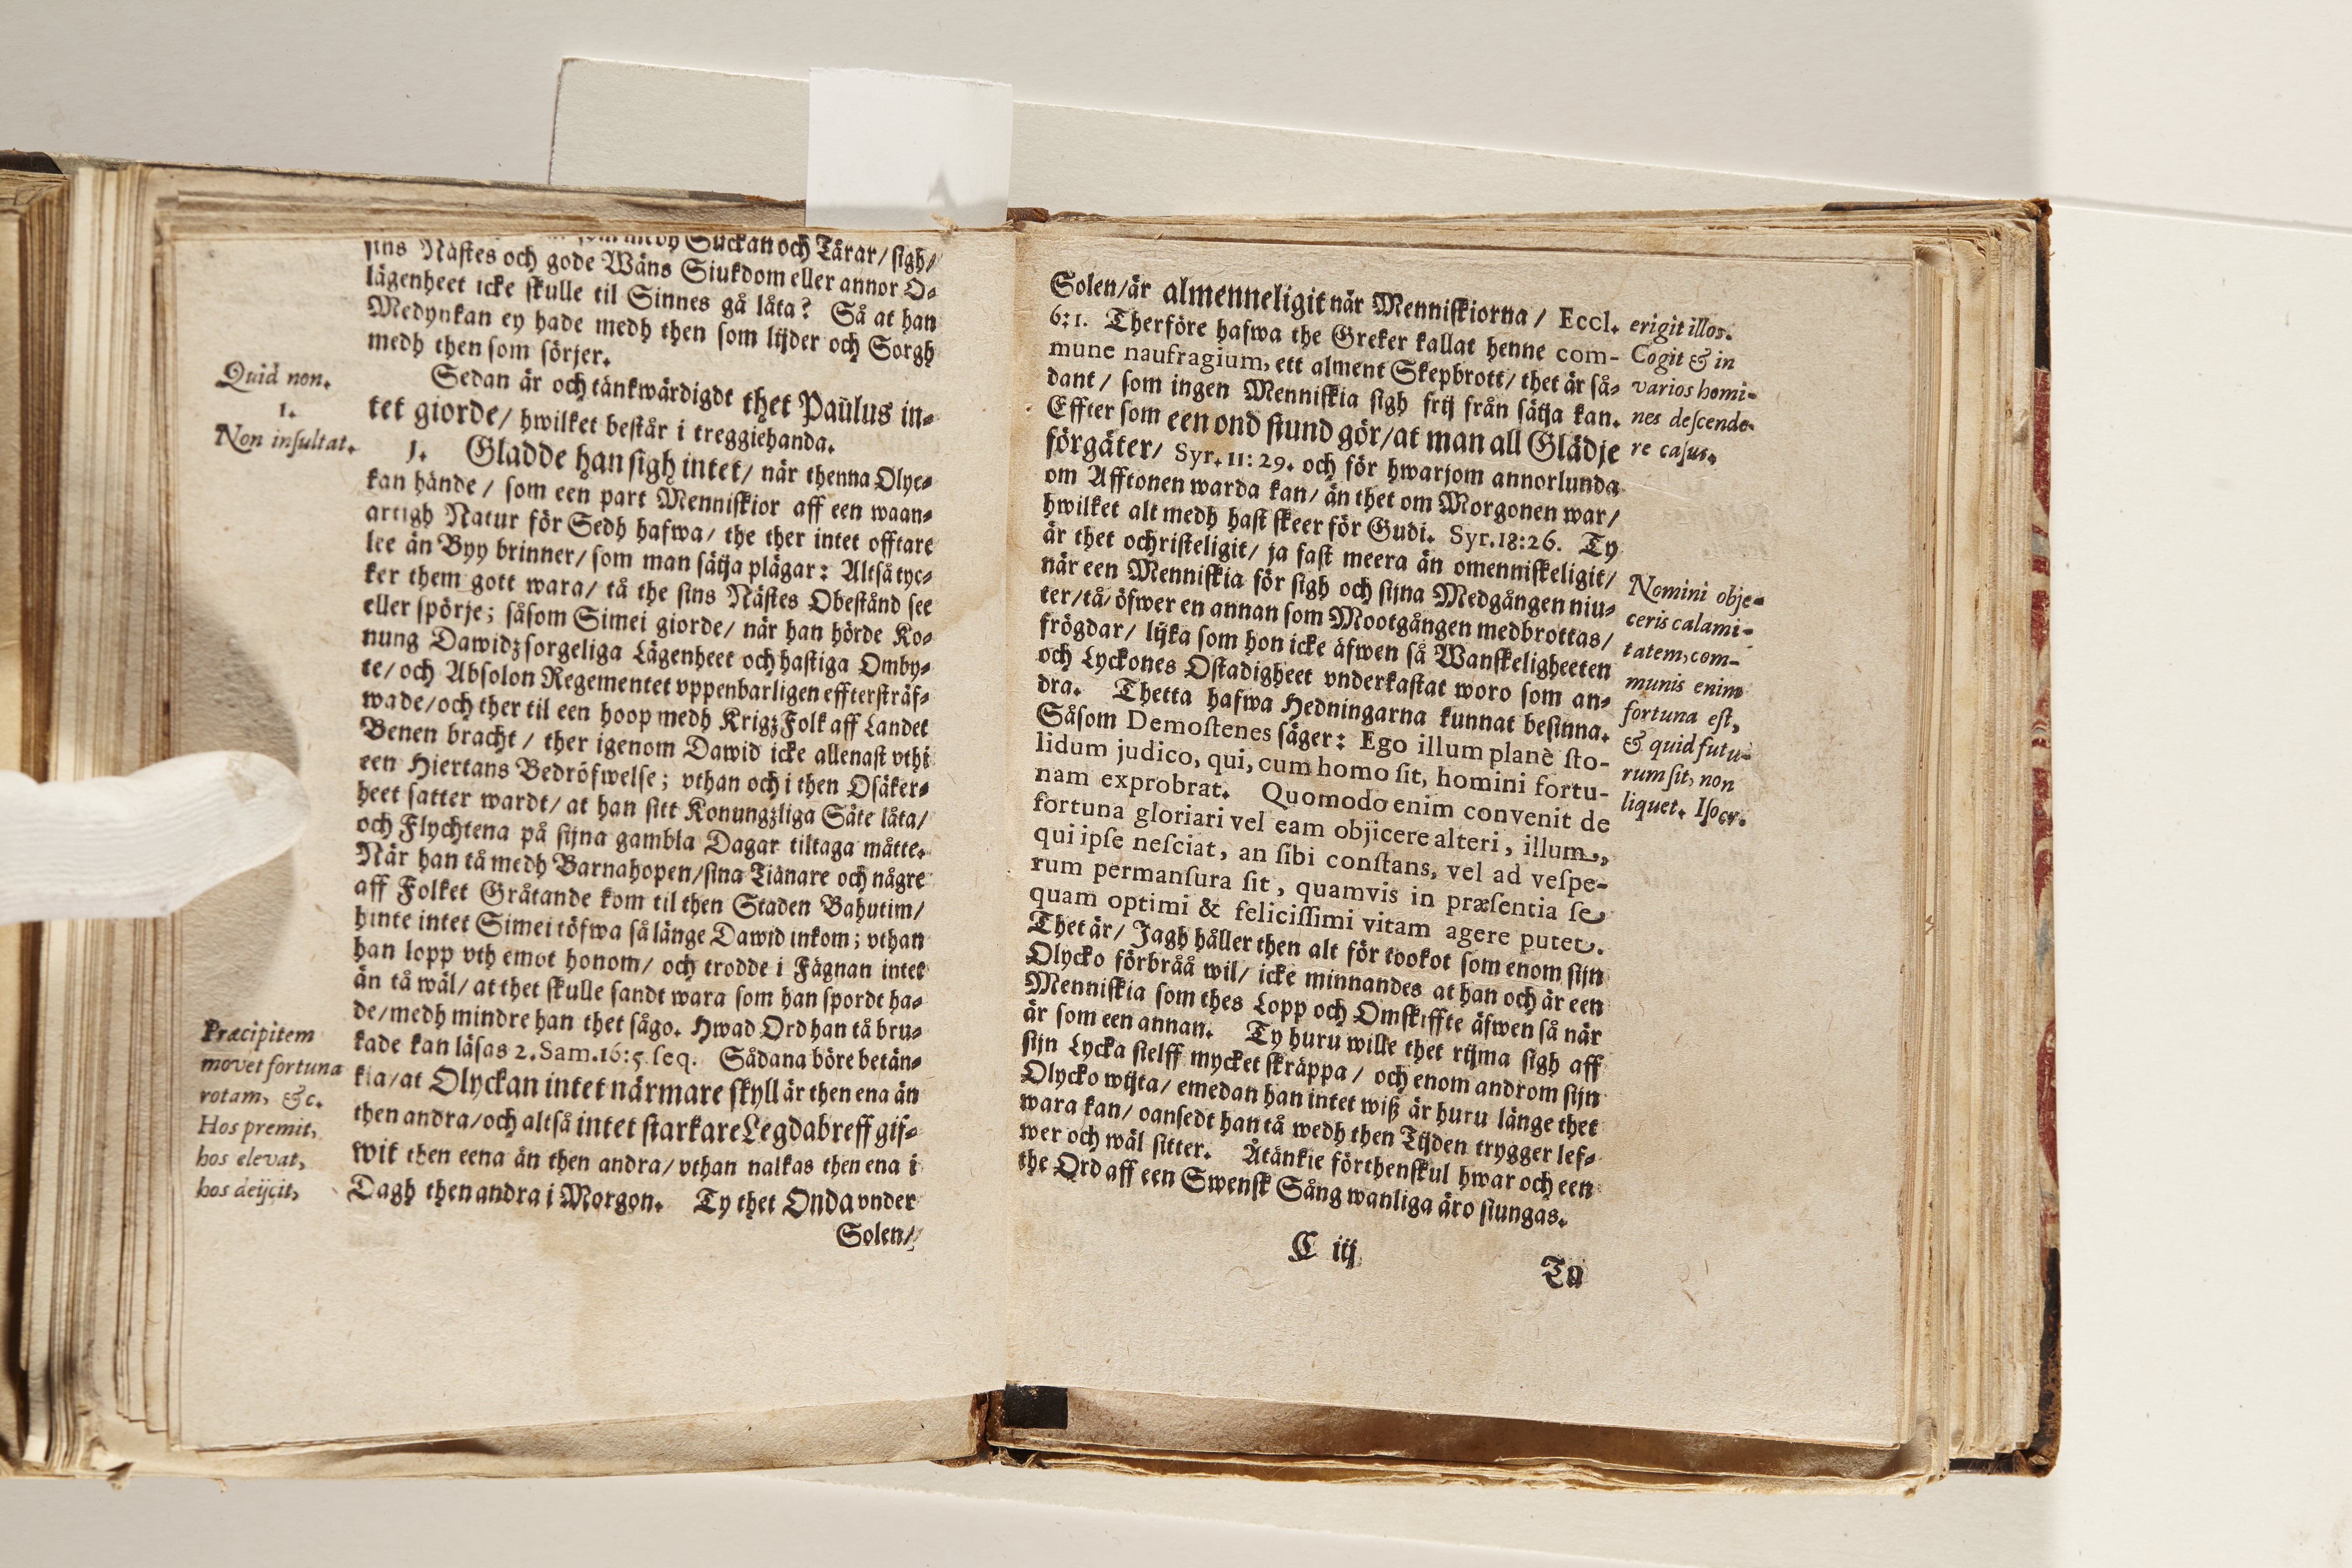 medh Suckan och Tårar/ sigh/
sins Nästes och gode Wäns Siukdom eller annor O-
lägenheet icke skulle til Sinnes gå låta? Så at han
Medynkan ey hade medh then som lijder och Sorgh
medh then som sörjer.
Quid non.
Sedan är och tänkwärdigdt thet Paulus in-
1.
tet giorde/ hwilket består i treggiehanda.
Non insultat.
1. Gladde han sigh intet/ när thenna Olyc-
kan hände/ som een part Menniskior aff een waan-
artigh Natur för Sedh hafwa/ the ther intet offtare
lee än Byy brinner/ som man sätja plägar: Altså tyc-
ker them gott wara/ tå the sins Nästes Obestånd see
eller spörje; såsom Simei giorde/ när han hörde Ko-
nung Dawidz sorgeliga Lägenheet och hastiga Omby-
te/ och Absolon Regementet vppenbarligen effterstråf-
wade/ och ther til een hoop medh KrigzFolk aff Landet
Benen bracht/ ther igenom Dawid icke allenast vthi
een Hiertans Bedröfwelse; vthan och i then Osäker-
heet satter wardt/ at han sitt Konungzliga Säte låta/
och Flychtena på sijna gambla Dagar tiltaga måtte.
När han tå medh Barnahopen/ sina Tiänare och någre
aff Folket Gråtande kom til then Staden Bahutim/
hinte intet Simei töfwa så länge Dawid inkom; vthan
han lopp vth emot honom/ och trodde i Fägnan intet
än tå wäl/ at thet skulle sandt wara som han spordt ha-
de/ medh mindre han thet sågo. Hwad Ord han tå bru-
kade kan läsas 2. Sam. 16:5. seq. Sådana böre betän-
kia/ at Olyckan intet närmare skyll är then ena än
then andra/ och altså intet starkare Legdabreff gif-
wit then eena än then andra/ vthan nalkas then ena i
Dagh then andra i Morgon. Ty thet Onda vnder
Præcipitem
movet fortuna
rotam, &c.
Hos premit,
hos elevat,
hos deijcit,
Solen/
Solen/ är almenneligit när Menniskiorna/ Eccl.
6:1. Therföre hafwa the Greker kallat henne com-
mune naufragium, ett alment Skepbrott/ thet är så-
dant/ som ingen Menniskia sigh frij från sätja kan.
Effter som een ond stund gör/ at man all Glädje
förgäter/ Syr. 11:29. och för hwarjom annorlunda
om Afftonen warda kan/ än thet om Morgonen war/
hwilket alt medh hast skeer för Gudi. Syr. 18:26. Ty
är thet ochristeligit/ ja fast meera än omenniskeligit/
när een Menniskia för sigh och sijna Medgången niu-
ter/ tå/ öfwer en annan som Mootgången medbrottas/
frögdar/ lijka som hon icke äfwen så Wanskeligheeten
och Lyckones Ostadigheet vnderkastat woro som an-
dra. Thetta hafwa Hedningarna kunnat besinna.
Såsom Demostenes säger: Ego illum planè sto-
lidum judico, qui, cum homo sit, homini fortu-
nam exprobrat. Quomodo enim convenit de
fortuna gloriari vel eam objicere alteri, illum,
qui ipse nesciat, an sibi constans, vel ad vespe-
rum permansura sit, quamvis in præsentia se
quam optimi & felicissimi vitam agere putet.
Thet är/ Jagh håller then alt för tookot som enom sijn
Olycko förbråå wil/ icke minnandes at han och är een
Menniskia som thes Lopp och Omskiffte äfwen så när
är som een annan. Ty huru wille thet rijma sigh aff
sijn Lycka sielff mycket skräppa/ och enom androm sijn
Olycko wijta/ emedan han intet wiß är huru länge thet
wara kan/ oansedt han tå wedh then Tijden trygger lef-
wer och wäl sitter. Åtänkie förthenskul hwar och een
the Ord aff een Swensk Sång wanliga äro siungas.
erigit illos.
Cogit & in
varios homi-
nes descende-
re casus.
Nomini obje-
ceris calami-
tatem, com-
munis enim
fortuna est,
& quid futu-
rum sit, non
liquet. Isocr.
C iij
Tu